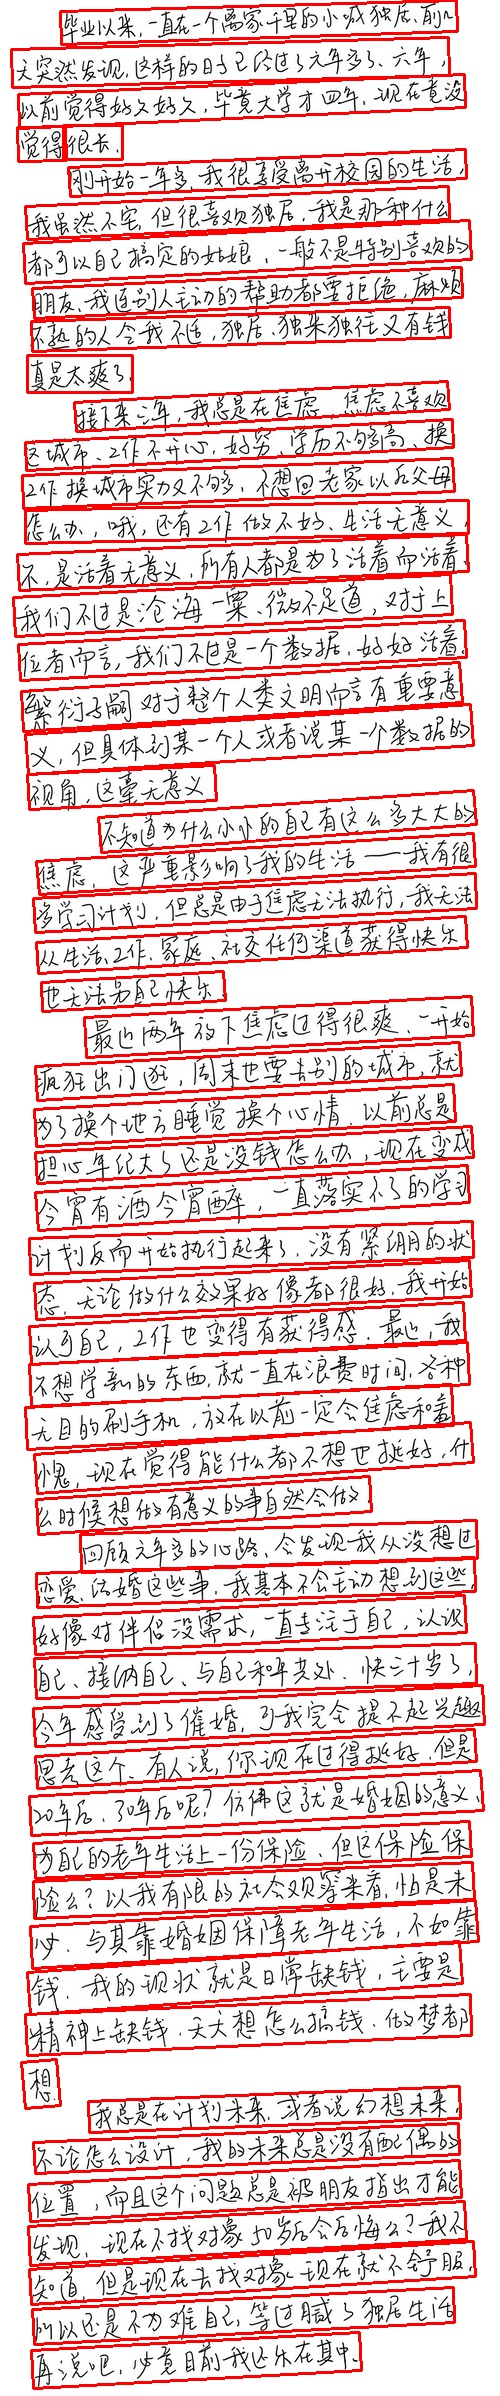 毕业以来，一直在一个离家千里的小城独居，前几
天突然发现，这样的日子已经过了六年多了、六年，
以前觉得好久好久，毕竟大学才四年，现在竟没
觉得很长。
刚开始一年多，我很享受离开校园的生活，
我虽然不宅，但很喜欢独居，我是那种什么
都可以自己搞定的姑娘，一般不是特别喜欢的
朋友、我连别人主动的帮助都要拒绝，麻烦
不熟的人令我不适，独居、独来独往又有钱
真是太爽了，
接下来三年，我总是在焦虑，焦虑不喜欢
这城市、工作不开心，好穷、学历不够高、换
工作换城市实力又不够，不想回老家以后父母
怎么办，哦，还有工作做不好、生活无意义，
不，是活着无意义，所有人都是为了活着而活着，
我们不过是沧海一粟、微不足道，对于上
位者而言，我们不过是一个数据，好好活着，
繁衍子嗣对于整个人类文明而言有重要意
义，但具体到某一个人或者说某一个数据的
视角，这毫无意义
不知道为什么小小的自己有这么多大大的
焦虑，这严重影响了我的生活——我有很
多学习计划，但总是由于焦虑无法执行，我无法
从生活、工作、家庭、社交任何渠道获得快乐
也无法为自己快乐
最近两年放下焦虑过得很爽、一开始
疯狂出门逛，周末也要去别的城市，就
为了换个地方睡觉换个心情，以前总是
担心年纪大了还是没钱怎么办，现在变成
今宵有酒今宵醉，一直落实不了的学习
计划反而开始执行起来了，没有紧绷的状
态，无论做什么效果好像都很好，我开始
认可自己，工作也变得有获得感，最近，我
不想学新的东西，就一直在浪费时间，各种
无目的刷手机，放在以前一定会焦虑和羞
愧，现在觉得能什么都不想也挺好，什
么时候想做有意义的事自然会做
回顾六年多的心路、会发现我从没想过
恋爱、结婚这些事，我基本不会主动想到这些，
好像对伴侣没需求，一直专注于自己，认识
自己、接纳自己、与自己和平共处、快三十岁了，
今年感受到了催婚，可我完全提不起兴趣
思考这个、有人说，你现在过得挺好，但是
20年后、30年后呢？仿佛这就是婚姻的意义、
为自己的老年生活上一份保险、但这保险保
险么？以我有限的社会观察来看，怕是未
必、与其靠婚姻保障老年生活，不如靠
钱，我的现状就是日常缺钱，主要是
精神上缺钱，天天想怎么搞钱、做梦都
想
我总是在计划未来，或者说幻想未来，
不论怎么设计，我的未来总是没有配偶的
位置，而且这个问题总是被朋友指出才能
发现，现在不找对象50岁后会后悔么？我不
知道，但是现在去找对象现在就不舒服，
所以还是不为难自己，等过腻了独居生活
再说吧，毕竟目前我还乐在其中、